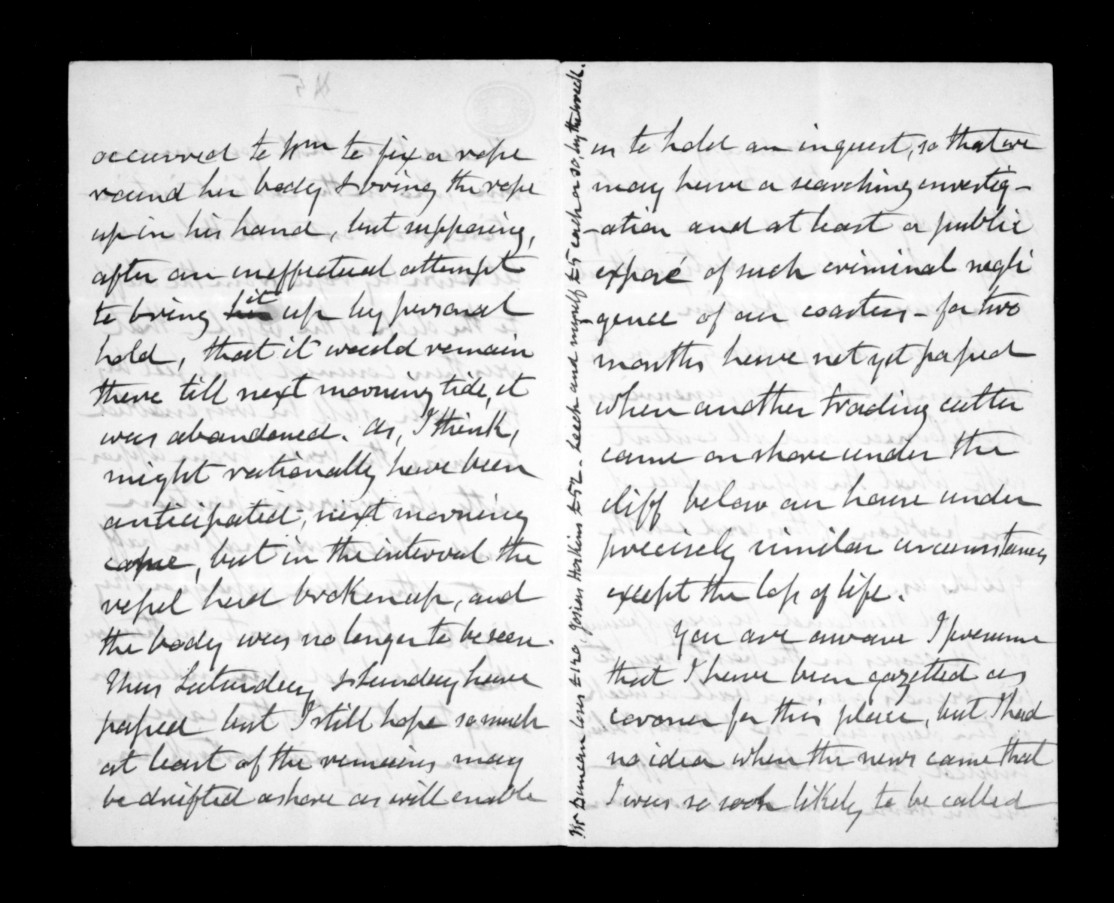 occurred to Wm to fix a rope
round her body & bring the rope
up in his hand, but supposing,
after an ineffectual attempt
to bring it up by personal
hold, that it would remain
there till next morning tide, it
was abandoned. As, I think,
might rationally have been
anticipated, next morning
came, but in the interval the
vessel had broken up, and
the body was no longer to be seen.
Thus Saturday & Sunday have
passed but I still hope so much
at least of the remains may
be drifted ashore as will enable
Mr Duncan loses £120, Josiah Hoskins £52 - Leech and myself £5 each or so, by the wreck.
us to hold an inquest, so that we
may have a searching investig-
-ation and at least a public
exposé of such criminal negli
-gence of our coasters - for two
months have not yet passed
when another trading cutter
came on shore under the
cliff below our house under
precisely similar circumstances
except the loss of life.
You are aware I presume
that I have been gazetted as
coroner for this place, but I had
no idea when the news came that
I was so soon likely to be called